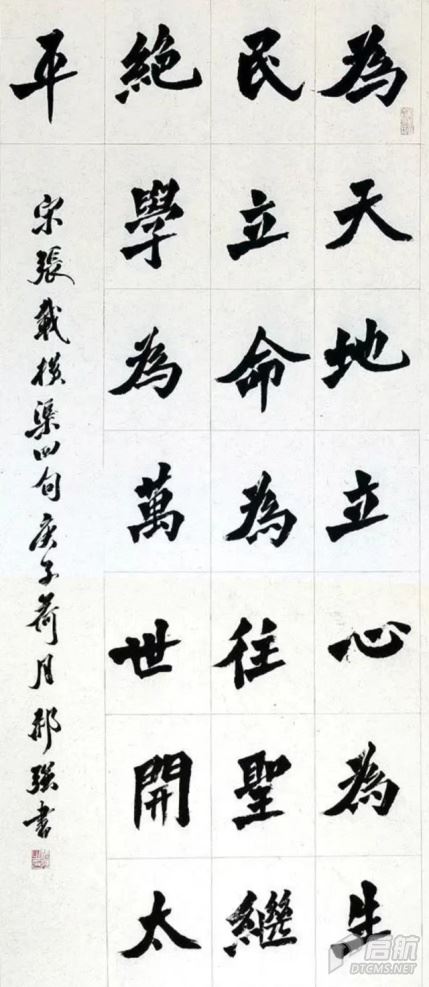 為天地立心為生
民立命為往聖繼
絕學為萬世開太
平
宋張載橫渠四句庚子荷月郝強書
启航
DTCMS.NET